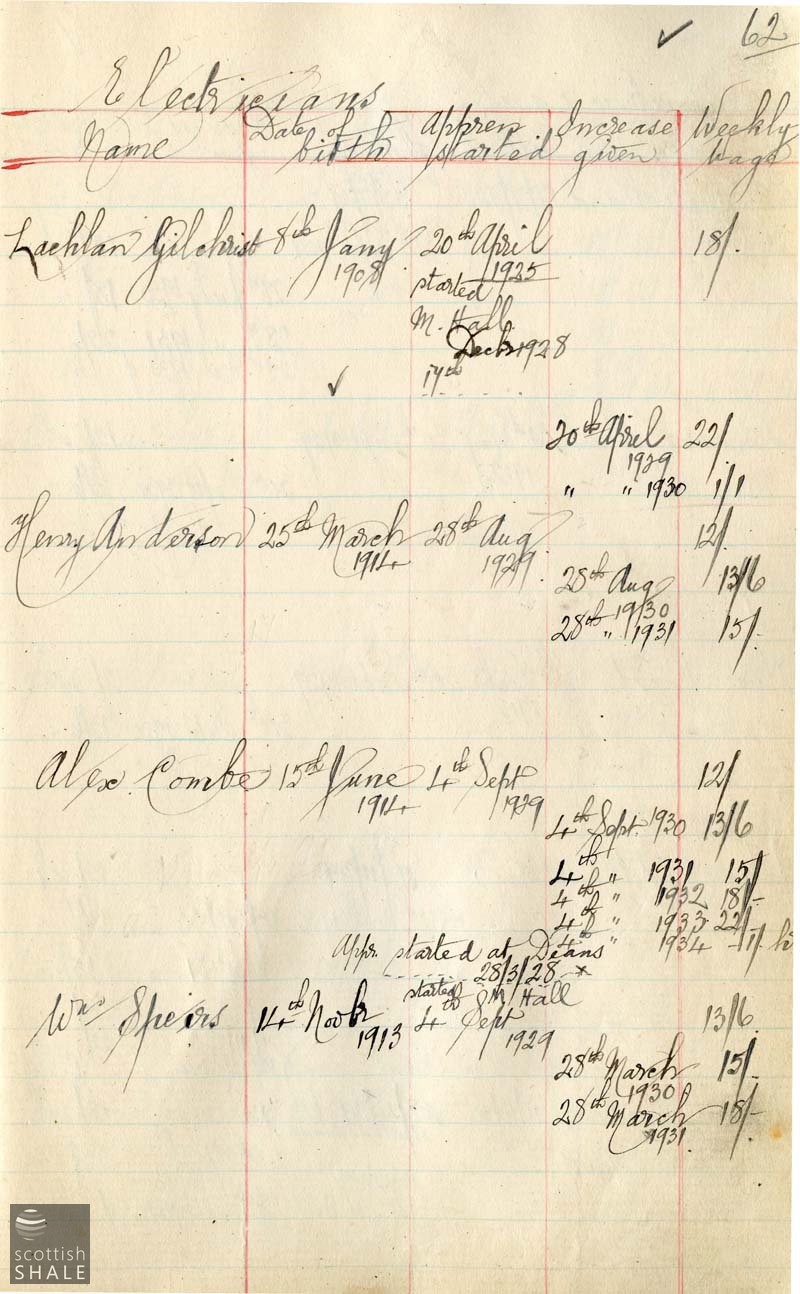 ✓ 62
Electricians
Name Date of birth Appren started Increase given Weekly wage
Lachlan Gilchrist 8th Jany 20th April 18/.
1908 1925
started
M. Hall
Decbr 1928
✓ 17th
20th April 22/.
1929
" " 1930 1/1
Henry Anderson 25th March 28th Aug 12/.
1914 1929
28th Aug 13/6
1930
28th " 1931 15/-
Alex. Combe 15th June 4th Sept 12/
1914 1929
4th Sept. 1930 13/6
4th " 1931 15/-
4th " 1932 18/-
4th " 1933 22/-
4th " 1934
Appr. started at Deans
28/3/28 *
started Hall
Wm Speirs 14th Novbr 4th Sept 13/6
1913 1929
28th March 15/-
1930
28th March 18/-
1931
scottish
SHALE